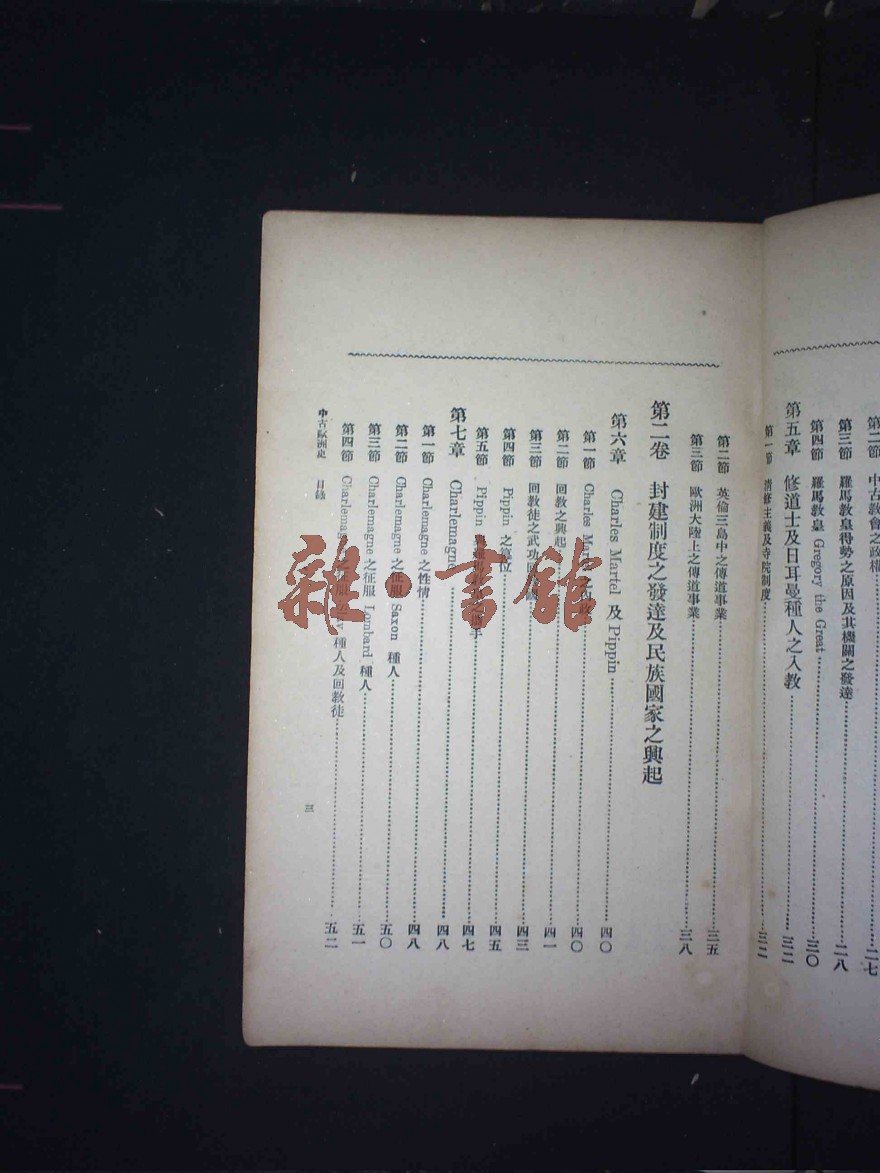 第二節 中古教會之政權 二七
第三節 羅馬教皇得勢之原因及其機關之發達 二八
第四節 羅馬教皇 Gregory the Great 三〇
第五章 修道士及日耳曼種人之入教 三二
第一節 清修主義及寺院制度 三二
第二節 英倫三島中之傳道事業 三五
第三節 歐洲大陸上之傳道事業 三八
第二卷 封建制度之發達及民族國家之興起
第六章 Charles Martel 及 Pippin 四〇
第一節 Charles 內政 四〇
第二節 回教之興起 四一
第三節 回教徒之武功 四三
第四節 Pippin 之篡位 四五
第五節 Pippin 手 四七
第七章 Charlemagne 四八
第一節 Charlemagne 之性情 四八
第二節 Charlemagne 之征服 Saxon 種人 五〇
第三節 Charlemagne 之征服 Lombard 種人 五一
第四節 Charlemagne 之征服 種人及回教徒 五二
中古歐洲史 目錄
三
雜·書館